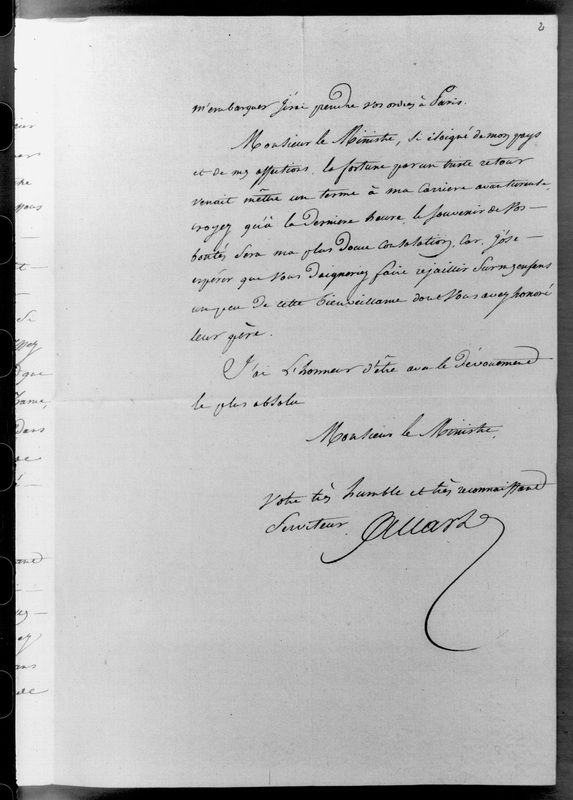 2
m'embarquer j'irai prendre vos ordres à Paris.
Monsieur le Ministre, si éloigné de mon pays
et de mes affections, la fortune par un triste retour
venait mettre un terme à ma carriere avantureuse
croyez qu'à la derniere heure le souvenir de vos
bontés sera ma plus douce consolation, car j'ose
espérer que vous daigneriez faire rejaillir sur mes enfans
un peu de cette bienveillance dont vous avez honoré
leur père.
J'ai l'honneur d'être avec le dévouement
le plus absolu
Monsieur le Ministre.
Votre très humble et très reconnaissant
Serviteur Allard